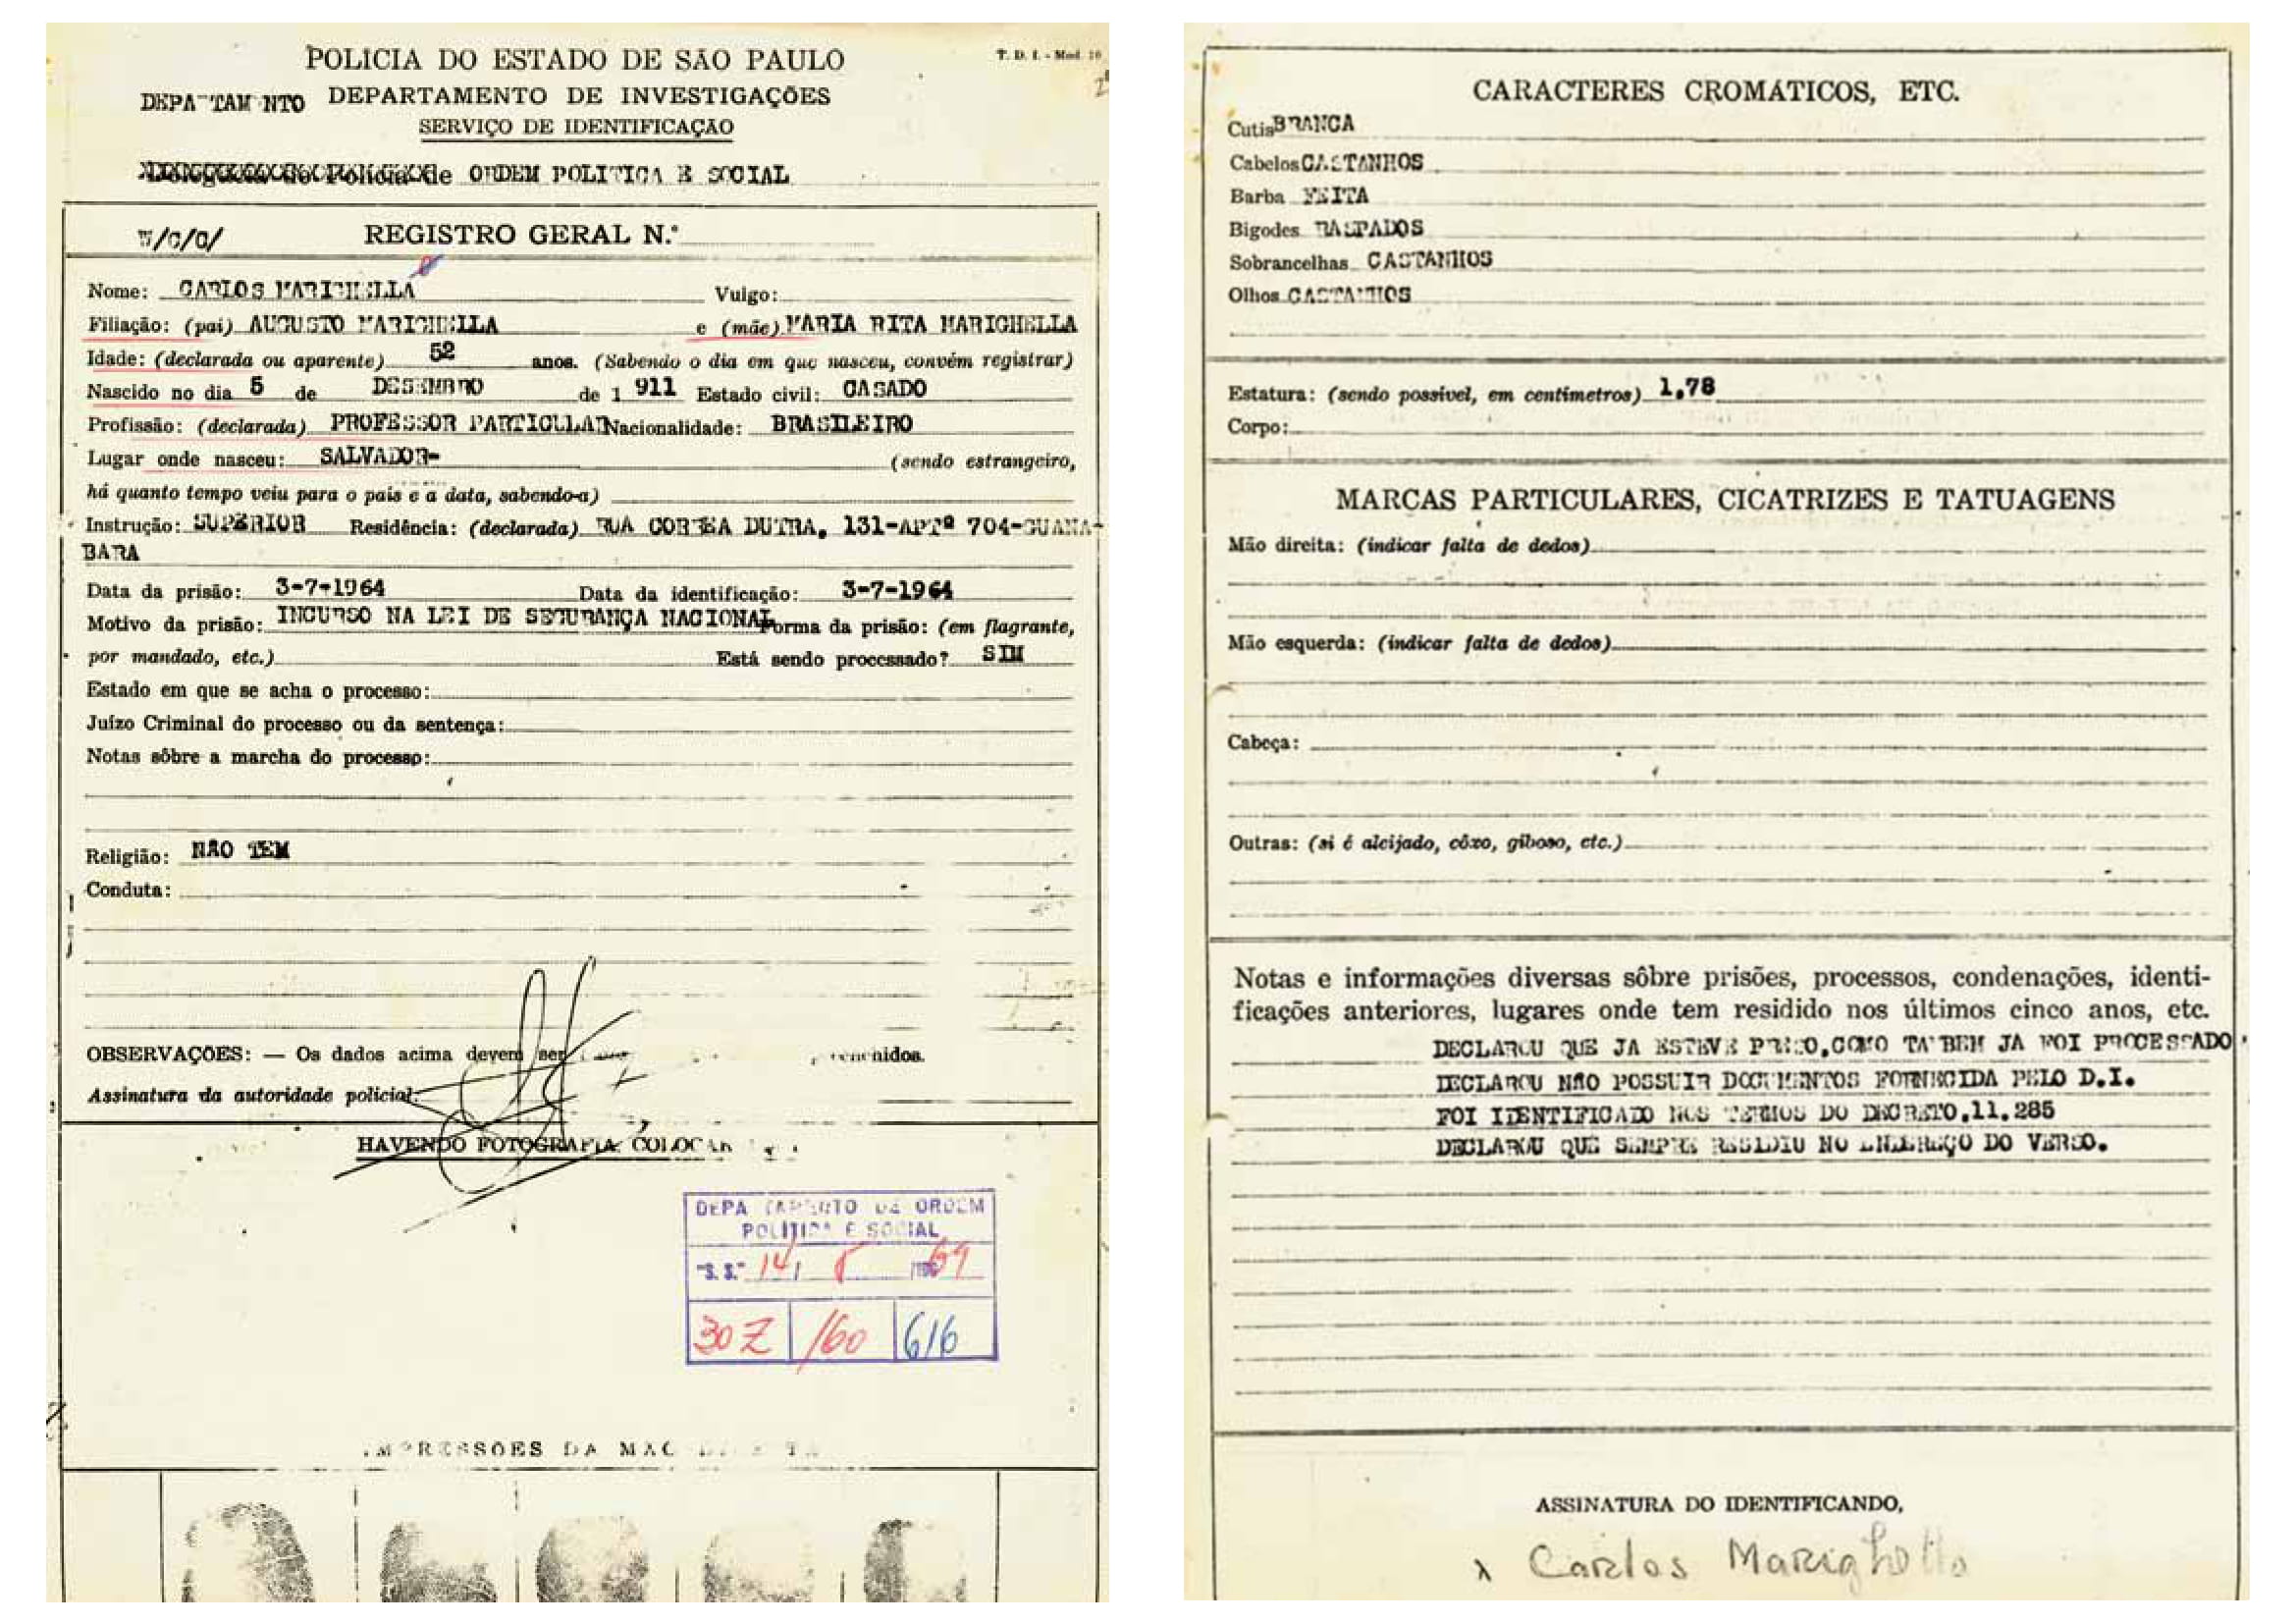 POLÍCIA DO ESTADO DE SÃO PAULO
T. D. I. - Mod. 10
DEPA TAM NTO DEPARTAMENTO DE INVESTIGAÇÕES
SERVIÇO DE IDENTIFICAÇÃO
de ORDEM POLITICA E SOCIAL
REGISTRO GERAL N.º
Nome: CARLOS MARIGHELLA Vulgo:
Filiação: (pai) AUGUSTO MARIGHELLA e (mãe) MARIA RITA MARIGHELLA
Idade: (declarada ou aparente) 52 anos. (Sabendo o dia em que nasceu, convém registrar)
Nascido no dia 5 de DESEMBRO de 1 911 Estado civil: CASADO
Profissão: (declarada) PROFESSOR PARTICULAR Nacionalidade: BRASILEIRO
Lugar onde nasceu: SALVADOR- (sendo estrangeiro,
há quanto tempo veiu para o país e a data, sabendo-a)
Instrução: SUPERIOR Residência: (declarada) RUA CORREA DUTRA, 131-APTº 704-GUANA-
BARA
Data da prisão: 3-7-1964 Data da identificação: 3-7-1964
Motivo da prisão: INCURSO NA LEI DE SEGURANÇA NACIONAL Forma da prisão: (em flagrante,
por mandado, etc.) Está sendo processado? SIM
Estado em que se acha o processo:
Juízo Criminal do processo ou da sentença:
Notas sôbre a marcha do processo:
Religião: NÃO TEM
Conduta:
OBSERVAÇÕES: — Os dados acima devem ser
Assinatura da autoridade policial:
HAVENDO FOTOGRAFIA, COLOCAR
DEPARTAMENTO DE ORDEM
POLÍTICA E SOCIAL
"S. S." 14 / 8 /1969
30Z /160 616
IMPRESSOES DA MAO
CARACTERES CROMÁTICOS, ETC.
Cutis BRANCA
Cabelos CASTANHOS
Barba FEITA
Bigodes RASPADOS
Sobrancelhas CASTANHOS
Olhos CASTANHOS
Estatura: (sendo possível, em centímetros) 1,78
Corpo:
MARCAS PARTICULARES, CICATRIZES E TATUAGENS
Mão direita: (indicar falta de dedos)
Mão esquerda: (indicar falta de dedos)
Cabeça:
Outras: (si é aleijado, côxo, giboso, etc.)
Notas e informações diversas sôbre prisões, processos, condenações, identi-
ficações anteriores, lugares onde tem residido nos últimos cinco anos, etc.
DECLAROU QUE JA ESTEVE PRESO, COMO TAMBEM JA FOI PROCESSADO
DECLAROU NÃO POSSUIR DOCUMENTOS FORNECIDA PELO D.I.
FOI IDENTIFICADO NOS TERMOS DO DECRETO.11.285
DECLAROU QUE SEMPRE RESIDIU NO ENDEREÇO DO VERSO.
ASSINATURA DO IDENTIFICANDO,
x Carlos Marighella